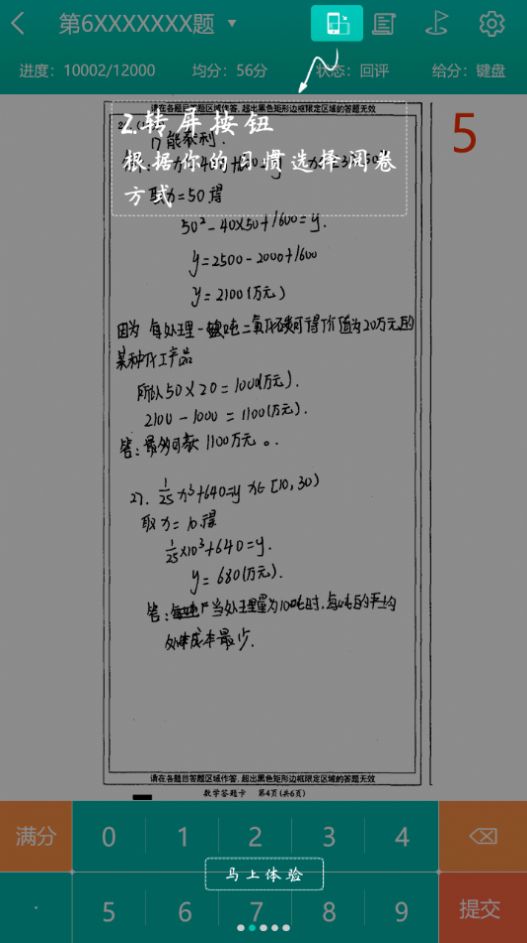 第6XXXXXXX题
进度：10002/12000 均分：56分 状态：回评 给分：键盘
请在各题目答题区域作答，超出黑色矩形边框限定区域的答题无效
5
2.转屏按钮
根据你的习惯选择阅卷
方式
取x=50得
50²-40×50+1600=y.
y=2500-2000+1600
y=2100(万元)
因为每处理一吨二氧化碳可得价值为20万元的
某种化工产品
所以50×20=1000(万元).
2100-1000=1100(万元).
答:最多可获1100万元。
27. 1/25 x³+640=y x∈[10,30)
取x=10得
1/25×10³+640=y.
y=680(万元).
答: 当处理量为10吨时,每吨的平均
处理成本最少.
请在各题目答题区域作答，超出黑色矩形边框限定区域的答题无效
数学答题卡 第4页(共6页)
满分 0 1 2 3 4
马上体验
. 5 6 7 8 9 提交